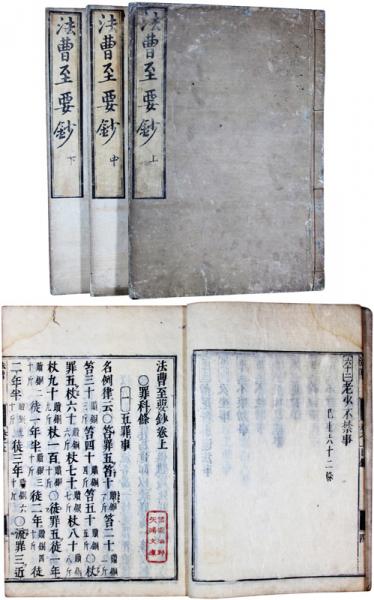 法曹至要鈔 上
法曹至要鈔 中
法曹至要鈔 下
不禁事
已上六十二條
法曹至要鈔卷上
〇罪科條
五罪事
名例律云〇笞罪五笞十 笞二十
笞三十 三斤 笞四十 四斤 笞五十 贖銅五斤 〇杖
罪五杖六十 六斤 杖七十 七斤 杖八十
杖九十 贖銅九斤 杖一百 贖銅十斤 〇徒罪五徒一年
徒一年半 徒二年 徒
二年半 徒三年 〇流罪三近